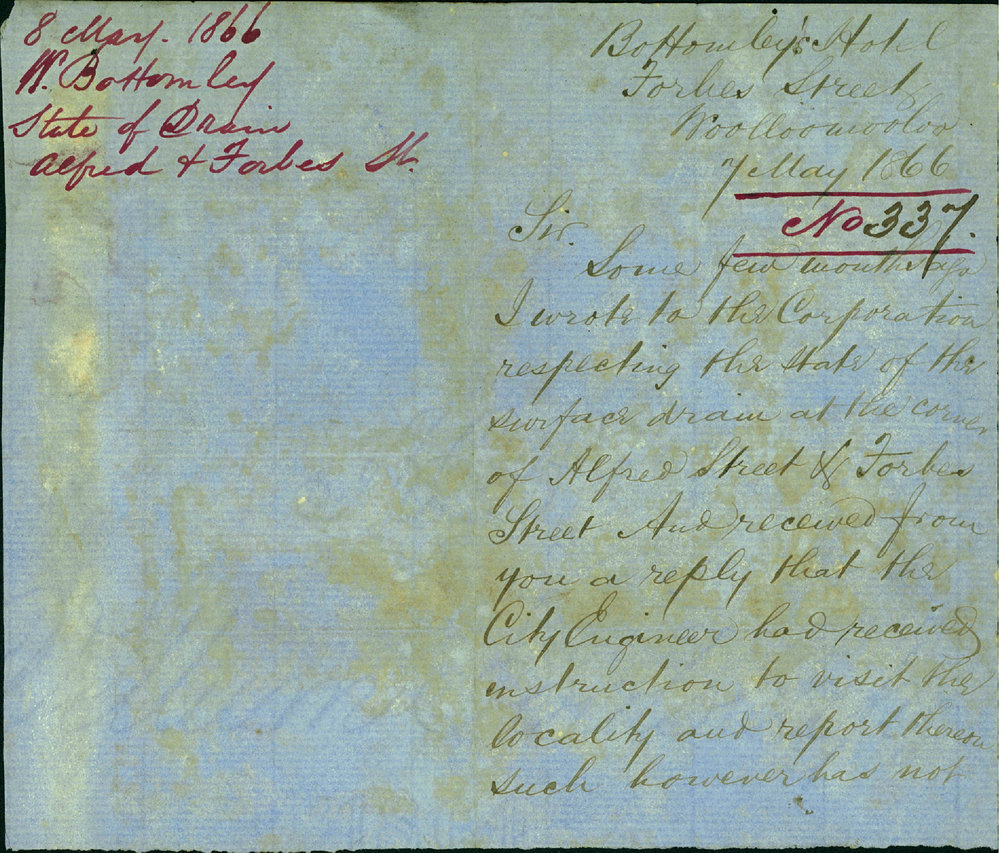 8 May. 1866
W. Bottomley
State of Drain
Alfred & Forbes St.
Bottomley's Hotel
Forbes Street
Woolloomooloo
7 May 1866
No 337.
Sir.
Some few months ago
I wrote to the Corporation
respecting the state of the
surface drain at the corner
of Alfred Street & Forbes
Street And received from
you a reply that the
City Engineer had received
instruction to visit the
locality and report thereon
such however has not